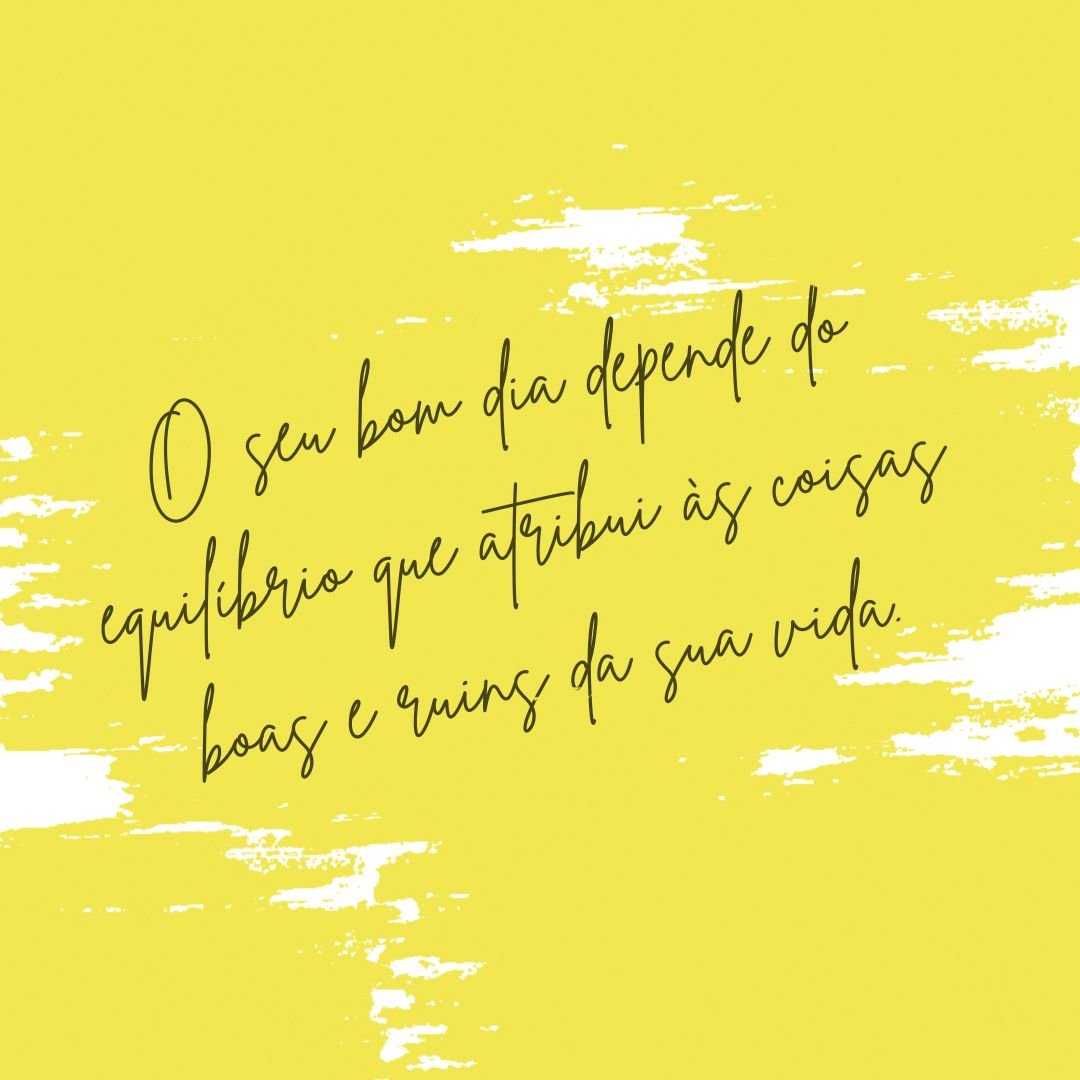 O seu bom dia depende do
equilíbrio que atribui às coisas
boas e ruins da sua vida.